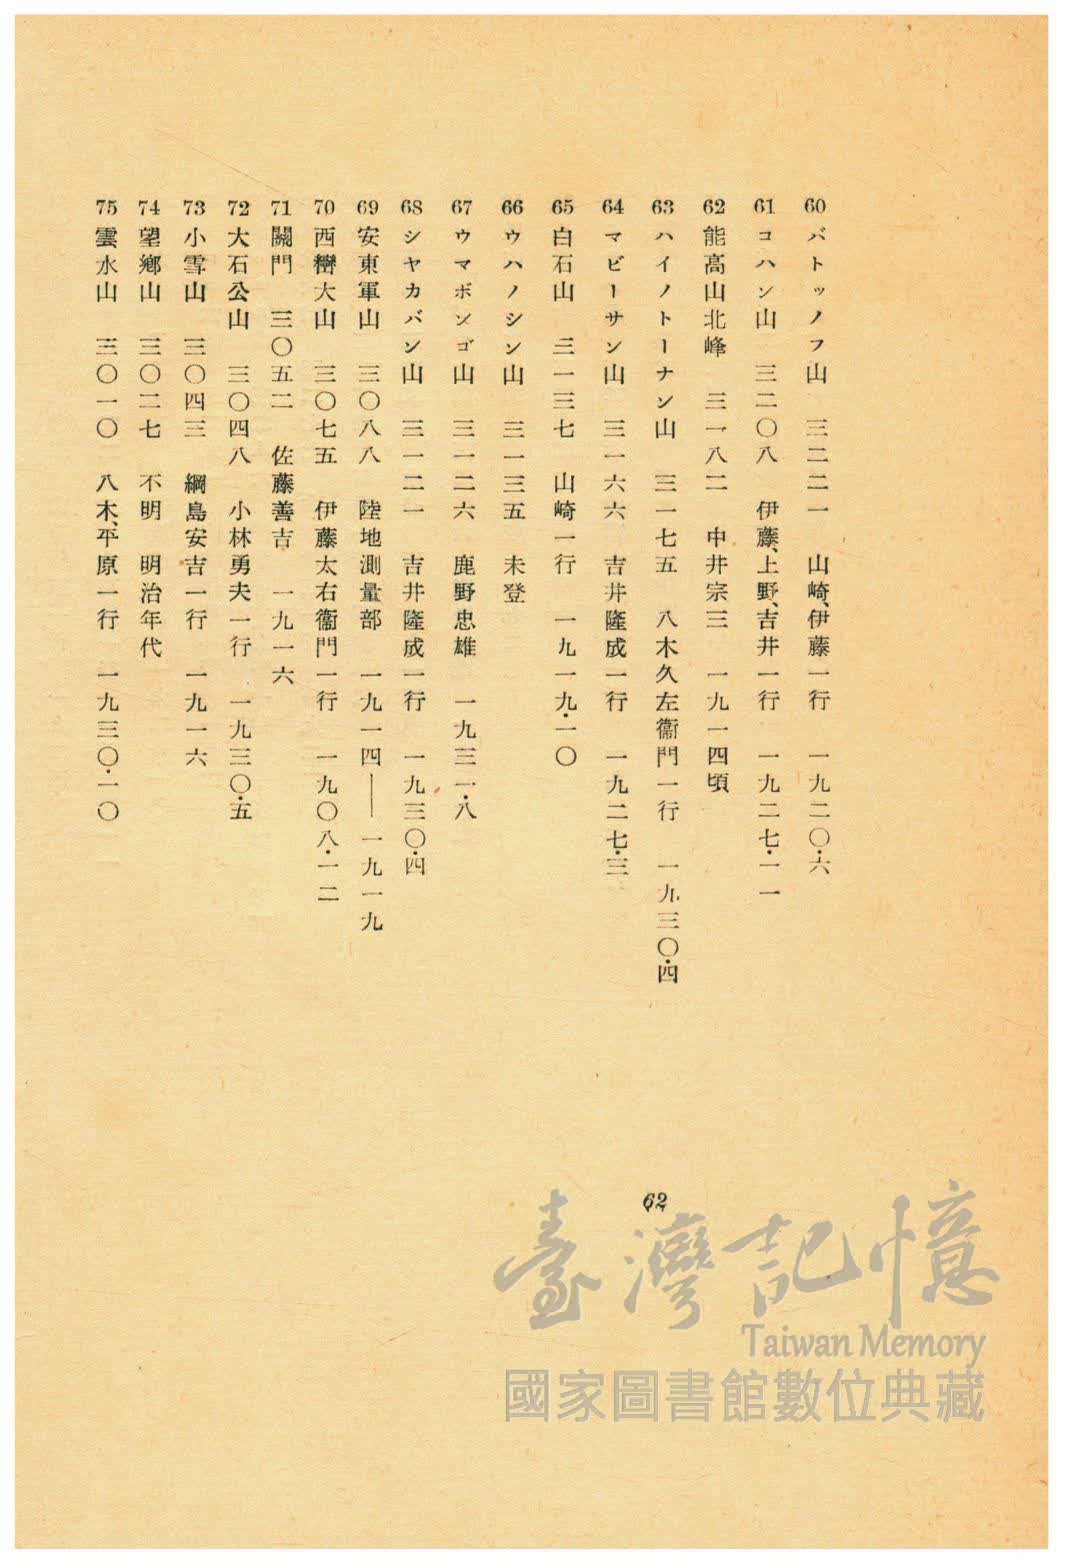 60 バトッノフ山 三二二一 山崎、伊藤一行 一九二〇・六
61 コハン山 三二〇八 伊藤、上野、吉井一行 一九二七・一一
62 能高山北峰 三一八二 中井宗三 一九一四頃
63 ハイノトーナン山 三一七五 八木久左衞門一行 一九三〇・四
64 マビーサン山 三一六六 吉井隆成一行 一九二七・三
65 白石山 三一三七 山崎一行 一九一九・一〇
66 ウハノシン山 三一三五 未登
67 ウマボンゴ山 三一二六 鹿野忠雄 一九三一・八
68 シヤカバン山 三一二一 吉井隆成一行 一九三〇・四
69 安東軍山 三〇八八 陸地測量部 一九一四――一九一九
70 西巒大山 三〇七五 伊藤太右衞門一行 一九〇八・一二
71 關門 三〇五二 佐藤善吉 一九一六
72 大石公山 三〇四八 小林勇夫一行 一九三〇・五
73 小雪山 三〇四三 綱島安吉一行 一九一六
74 望鄕山 三〇二七 不明 明治年代
75 雲水山 三〇一〇 八木、平原一行 一九三〇・一〇
62
臺灣記憶
Taiwan Memory
國家圖書館數位典藏